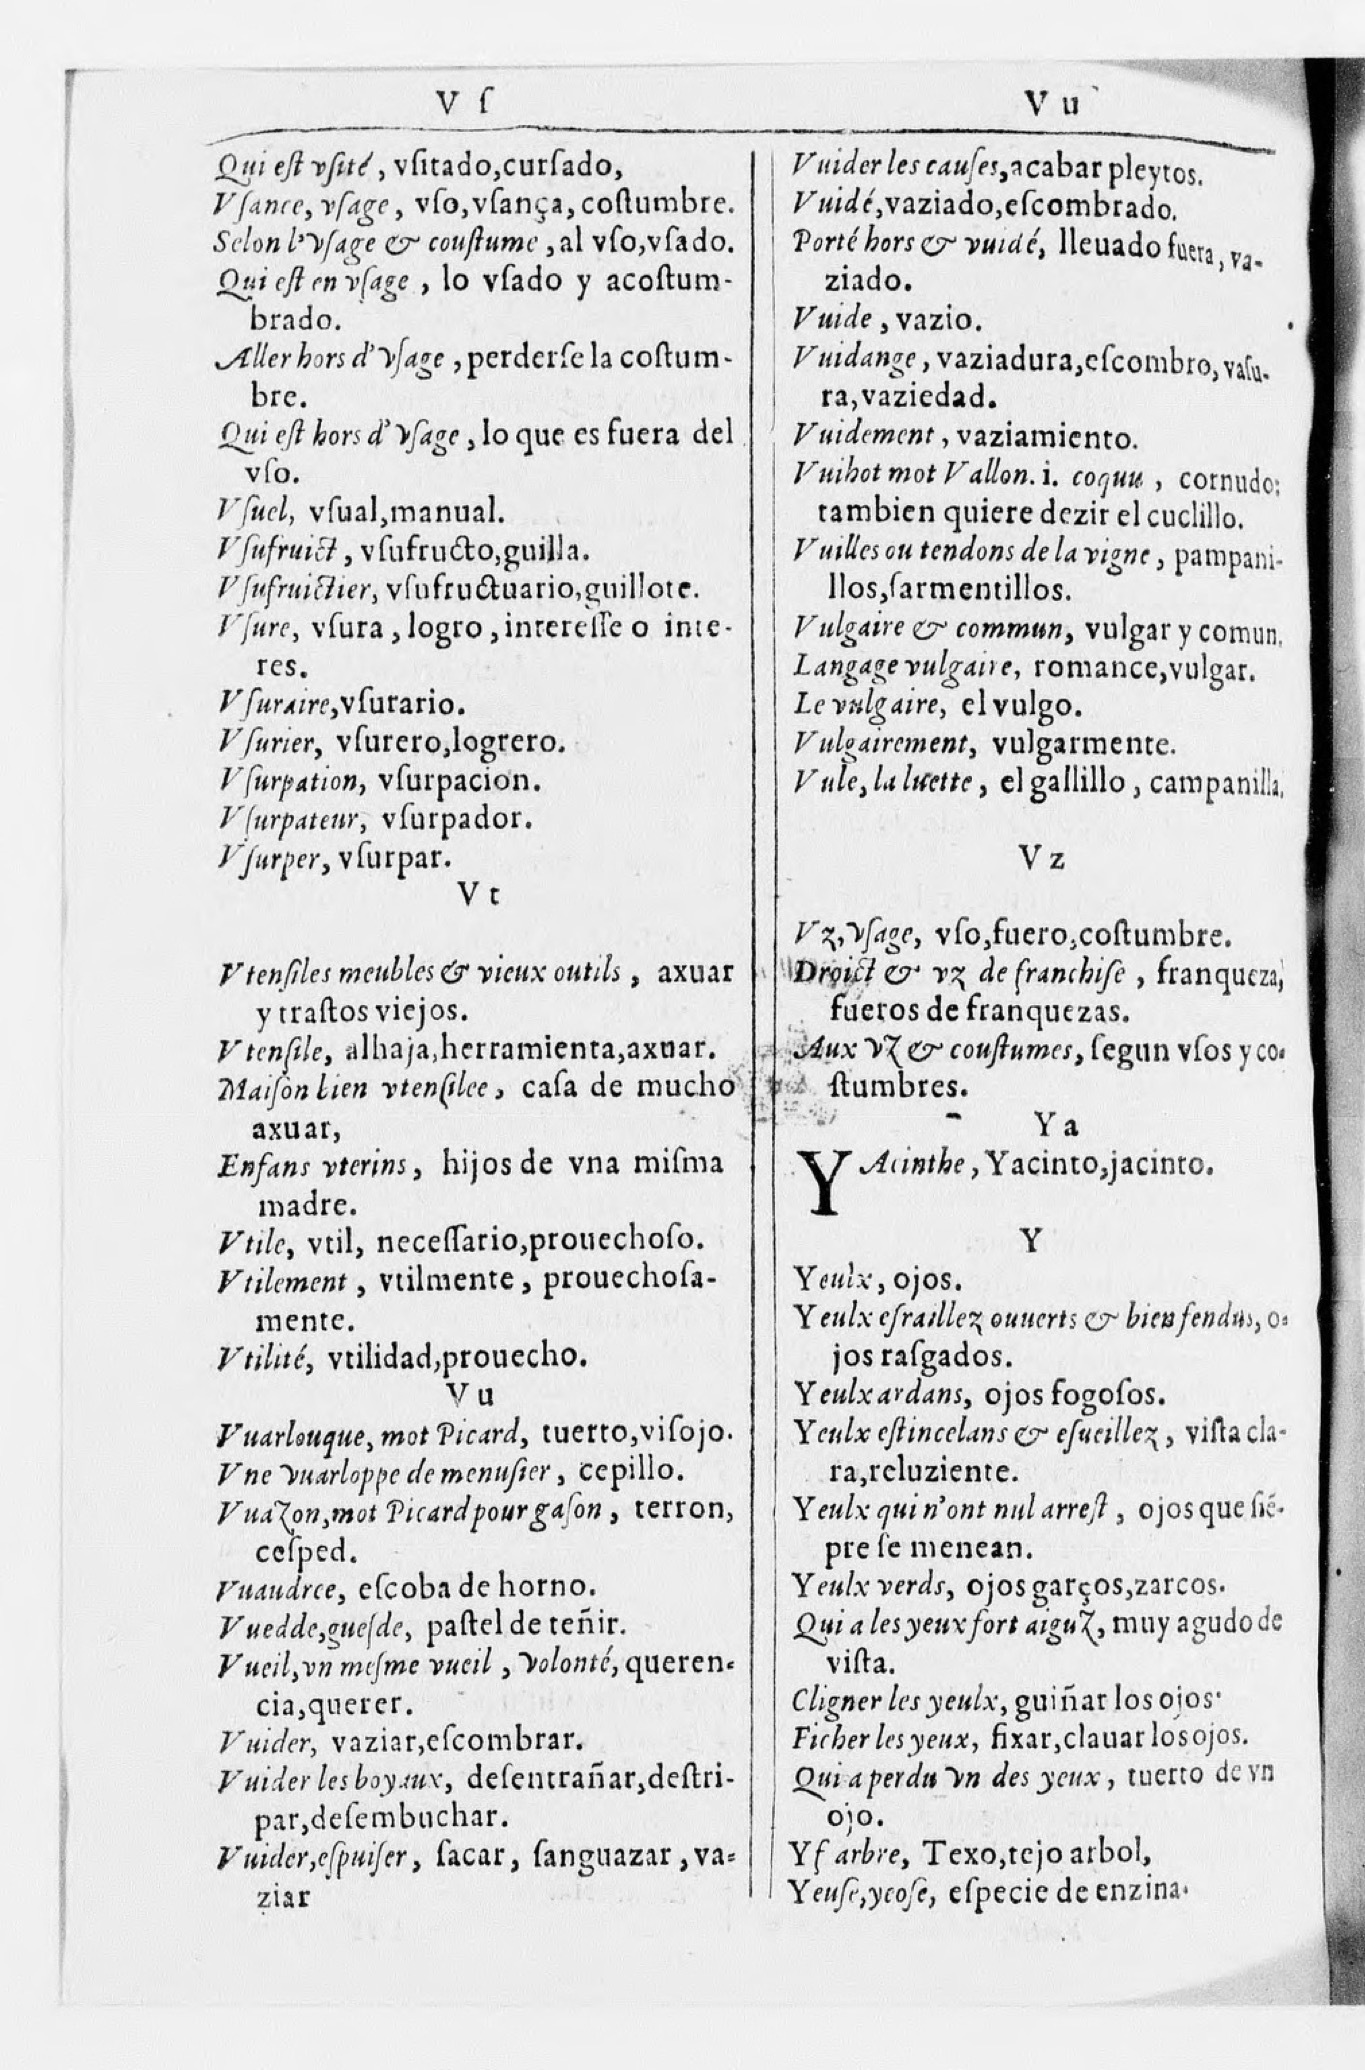 V ſ
Qui eſt vſité, vſitado,curſado,
Vſance, vſage, vſo,vſança, coſtumbre.
Selon l'vſage & couſtume, al vſo,vſado.
Qui eſt en vſage, lo vſado y acoſtum-
brado.
Aller hors d'vſage, perderſe la coſtum-
bre.
Qui eſt hors d'vſage, lo que es fuera del
vſo.
Vſuel, vſual,manual.
Vſufruict, vſufructo,guilla.
Vſufruictier, vſufructuario,guillote.
Vſure, vſura, logro, intereſſe o inte-
res.
Vſuraire,vſurario.
Vſurier, vſurero,logrero.
Vſurpation, vſurpacion.
Vſurpateur, vſurpador.
Vſurper, vſurpar.
V t
Vtenſiles meubles & vieux outils, axuar
y traſtos viejos.
Vtenſile, alhaja,herramienta,axuar.
Maiſon bien vtenſilee, caſa de mucho
axuar,
Enfans vterins, hijos de vna miſma
madre.
Vtile, vtil, neceſſario,prouechoſo.
Vtilement, vtilmente, prouechoſa-
mente.
Vtilité, vtilidad,prouecho.
V u
Vuarlouque, mot Picard, tuerto,viſojo.
Vne vuarloppe de menuſier, cepillo.
Vuazon,mot Picard pour gaſon, terron,
ceſped.
Vuaudree, eſcoba de horno.
Vuedde,gueſde, paſtel de teñir.
Vueil,vn meſme vueil, volonté, queren-
cia,querer.
Vuider, vaziar,eſcombrar.
Vuider les boyaux, deſentrañar,deſtri-
par,deſembuchar.
Vuider,eſpuiſer, ſacar, ſanguazar, va-
ziar
V u
Vuider les cauſes,acabar pleytos.
Vuidé,vaziado,eſcombrado.
Porté hors & vuidé, lleuado fuera, va-
ziado.
Vuide, vazio.
Vuidange, vaziadura,eſcombro, vaſu-
ra,vaziedad.
Vuidement, vaziamiento.
Vuihot mot Vallon. i. coquu, cornudo;
tambien quiere dezir el cuclillo.
Vuilles ou tendons de la vigne, pampani-
llos,ſarmentillos.
Vulgaire & commun, vulgar y comun.
Langage vulgaire, romance,vulgar.
Le vulgaire, el vulgo.
Vulgairement, vulgarmente.
Vule, la luette, el gallillo, campanilla.
V z
Vz,vſage, vſo,fuero,coſtumbre.
Droict & vz de franchiſe, franqueza,
fueros de franquezas.
Aux vz & couſtumes, ſegun vſos y co-
ſtumbres.
Y a
YAcinthe, Yacinto,jacinto.
Y
Yeulx, ojos.
Yeulx eſraillez ouuerts & bien fendus, o-
jos raſgados.
Yeulx ardans, ojos fogoſos.
Yeulx eſtincelans & eſueillez, viſta cla-
ra,reluziente.
Yeulx qui n'ont nul arreſt, ojos que ſié-
pre ſe menean.
Yeulx verds, ojos garços,zarcos.
Qui a les yeux fort aiguz, muy agudo de
viſta.
Cligner les yeulx, guiñar los ojos.
Ficher les yeux, fixar,clauar los ojos.
Qui a perdu vn des yeux, tuerto de vn
ojo.
Yf arbre, Texo,tejo arbol,
Yeuſe,yeoſe, eſpecie de enzina.